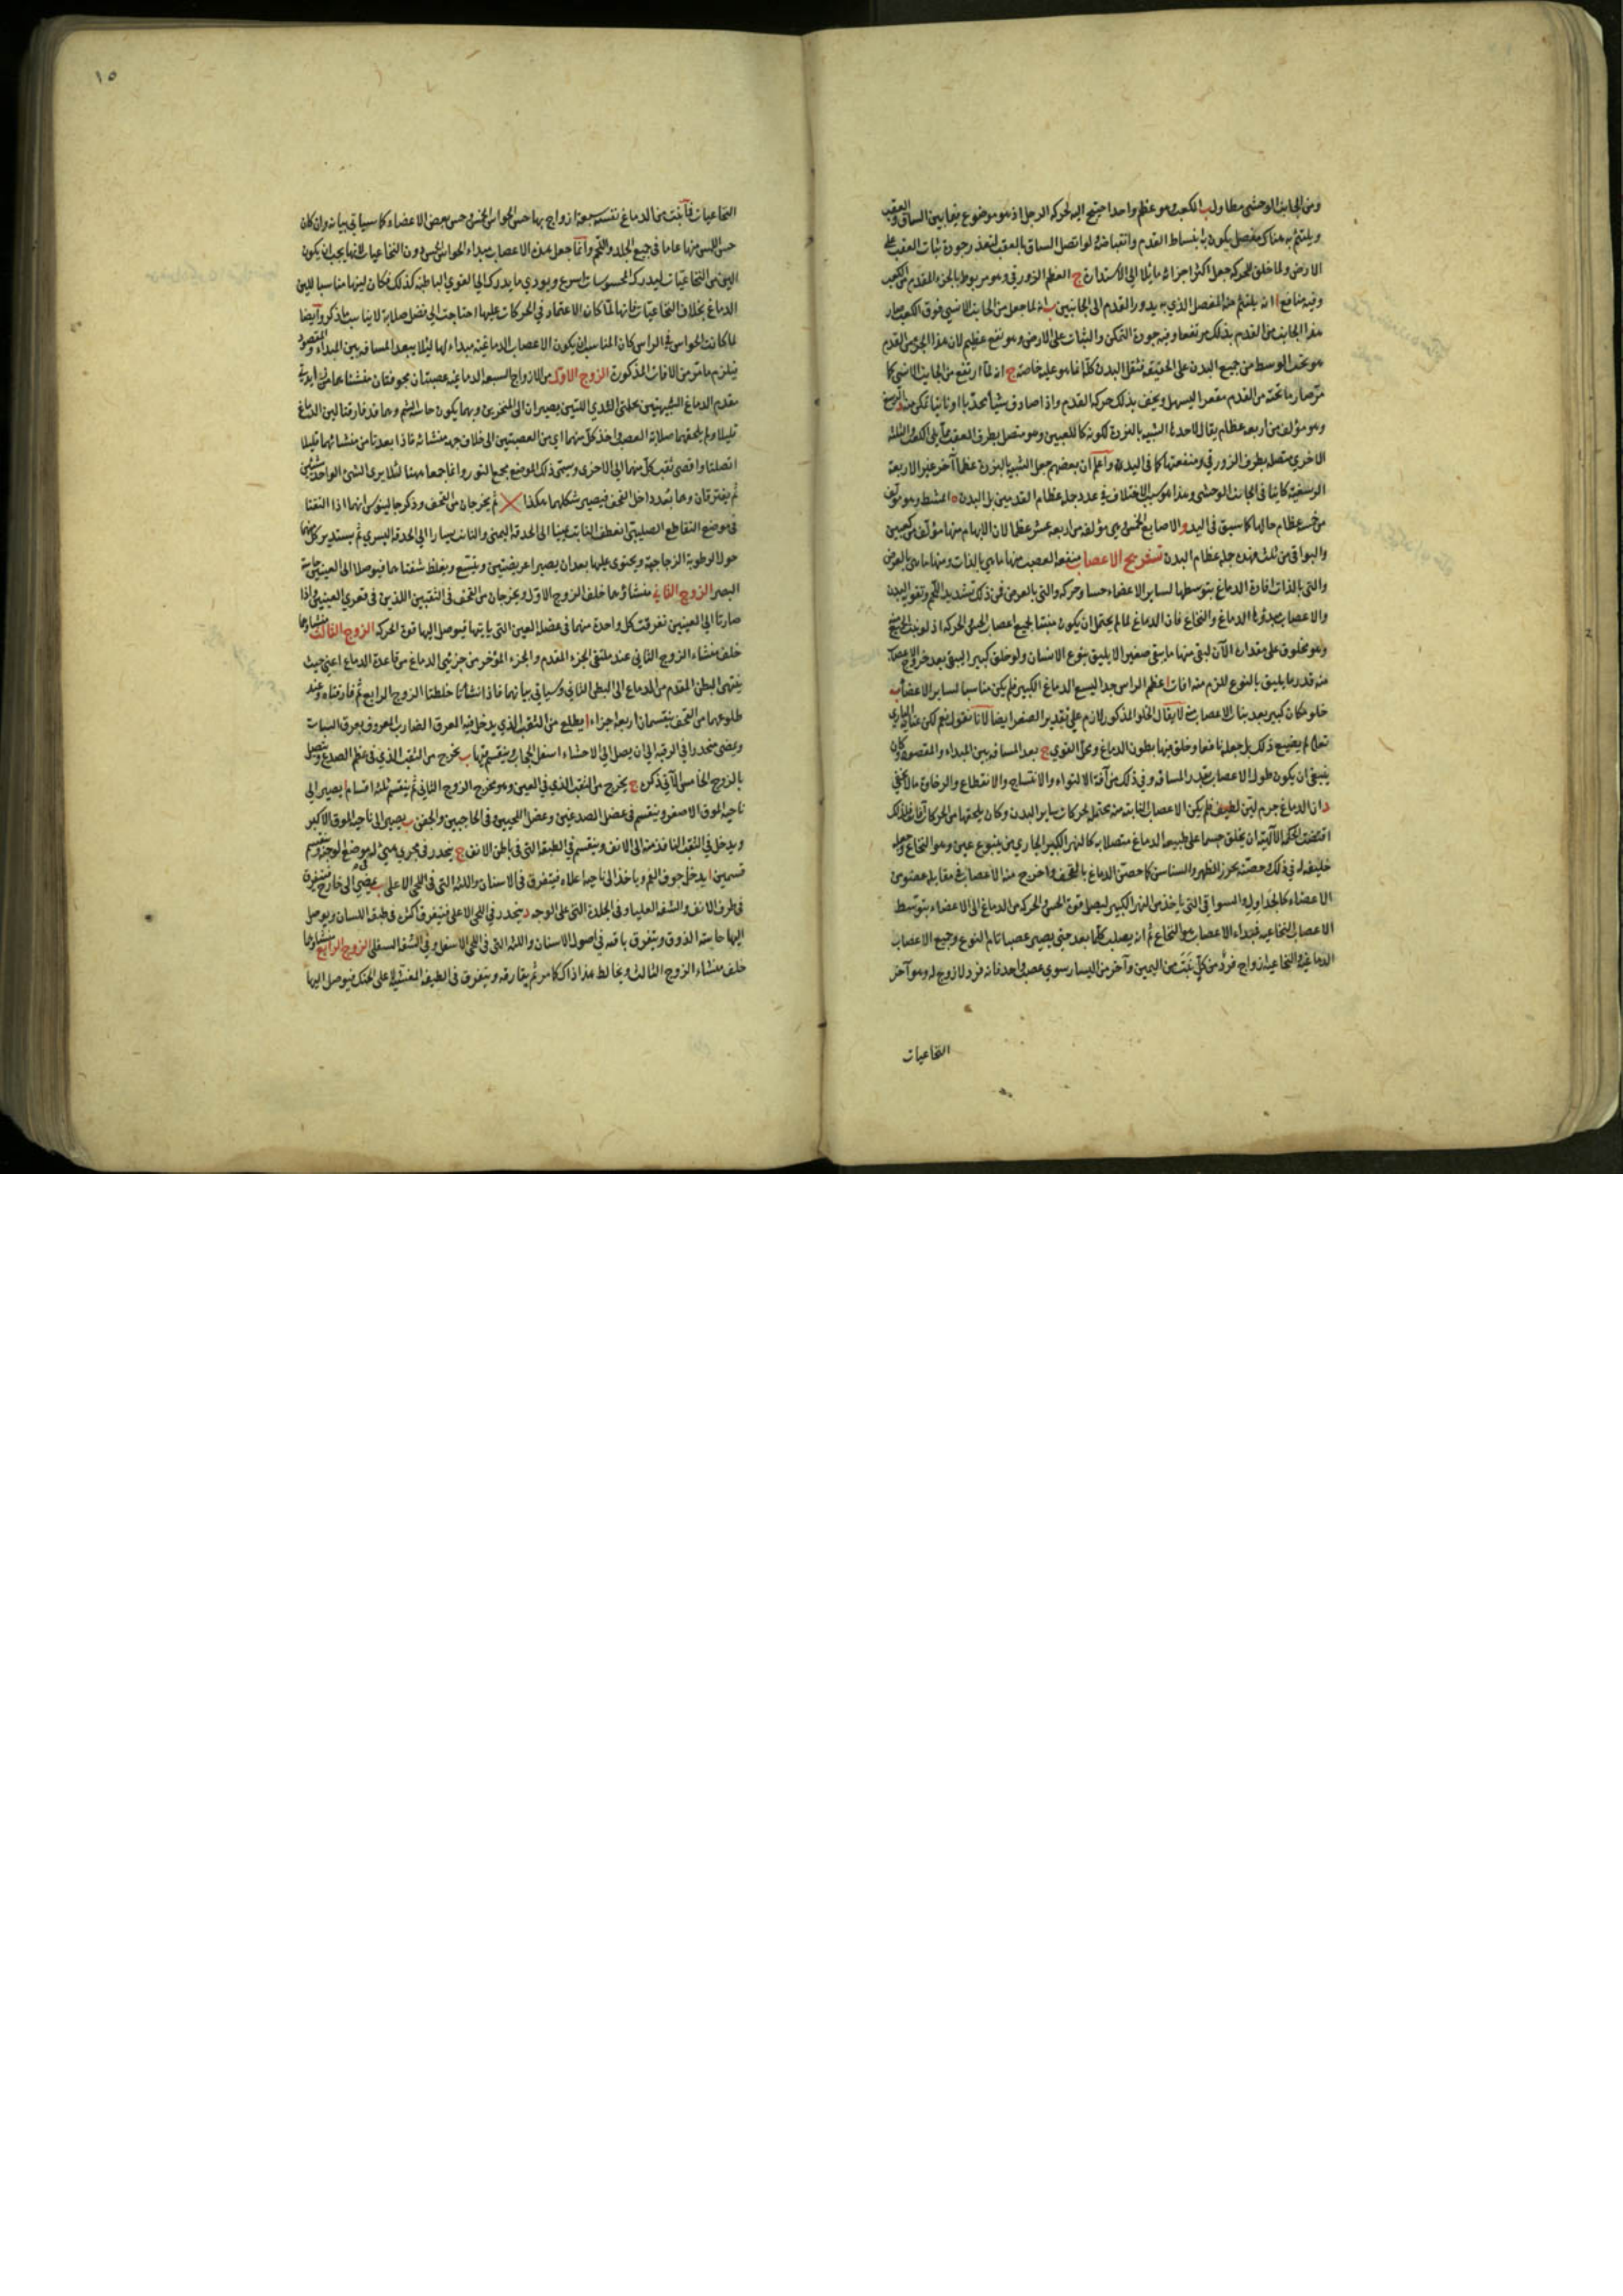 ومن الجانب الوحشي مطاول ب الكعب وهو عظم واحد احتيج اليه لحركة الرجل اذ هو موضوع فيما بين الساق والعقب
ويلتئم به هناك مفصل يكون به انبساط القدم وانقباضه لو اتصل الساق بالعقب لتعذر جودة ثبات العقب على
الارض ولما خلق للحركة جعل اكثر اجزائه مائلا الى الاستدارة ج العظم الزورقي وهو مربوط بالجزء المقدم من الكعب
وفيه منافع ا انه يلتئم منه المفصل الذي به يدور القدم الى الجانبين ب انه لما جعل من الجانب الانسي فوق الكعب صار
هذا الجانب من القدم بذلك مرتفعا وفيه جودة التمكن والثبات على الارض وهو نفع عظيم لان هذا الجزء من القدم
هو تحت الوسط من جميع البدن على الحقيقة فثقل البدن كله انما هو عليه خاصة ج انه لما ارتفع من الجانب الانسي كما
مر صار ما تحته من القدم مقعرا ليسهل ويخف بذلك حركة القدم واذا صادف شيأ محدبا او ناتيا تمكن منه د الرسغ
وهو مؤلف من اربعة عظام يقال لاحدها الشبيه بالنردة لكونه كاللعبين وهو متصل بطرف العقب مما يلي الكعب والثلثة
الاخرى متصلة بطرف الزورقي ومنفعتها كما في اليد واعلم ان بعضهم جعل الشبيه بالنردة عظما آخر غير الاربعة
الرسغية كاينا في الجانب الوحشي وهذا هو سبب الاختلاف في عدد جملة عظام القدمين بل البدن ه المشط وهو مؤلف
من خمسة عظام حالها كما سبق في اليد و الاصابع الخمس هي مؤلفة من اربعة عشر عظما لان الابهام منها مؤلف من عظمين
والبواقي من ثلث فهذه جملة عظام البدن تشريح الاعصاب منفعة العصب منها ما هي بالذات ومنها ما هي بالعرض
والتي بالذات افادة الدماغ بتوسطها لساير الاعضاء حسا وحركة والتي بالعرض فمن ذلك تشديد اللحم وتقوية البدن
والاعصاب مبدؤها الدماغ والنخاع فان الدماغ لما لم يحتمل ان يكون منبتا لجميع اعصاب الحس والحركة اذ لو نبت الجميع منه
وهو مخلوق على مقداره الآن لبقي منها ما يبقى صغيرا لا يليق بنوع الانسان ولو خلق كبيرا ليبقى بعد خروج الاعصاب
منه قدر ما يليق بالنوع للزم منه افات ا عظم الراس جدا ليسع الدماغ الكبير فلم يكن مناسبا لساير الاعضاء ب
خلو مكان كبير بعد بنات الاعصاب منه لا يقال الخلو المذكور لازم على تقدير الصغر ايضا لانا نقول نعم لكن عناية الباري
تعالى لم يضيع ذلك بل جعله نافعا وخلق منها بطون الدماغ ومحل القوي ج بعد المسافة بين المبداء والمقصود وكان
ينبغي ان يكون طول الاعصاب بقدر المسافة وفي ذلك من آفة الالتواء والانتساج والانقطاع والرخاوة ما لا يخفى
د ان الدماغ جرم لين لطيف فلم يكن الاعصاب النابتة منه يحتمل لحركات ساير البدن وكان يلحقها من الحركات آفات فلذلك
اقتضت الحكمة الآلهية ان يخلق جسما على طبيعة الدماغ متصلا به كالنهر الكبير الجاري من ينبوع عين وهو النخاع وجعله
خليفة له في ذلك وحصنه بخرز الظهر والسناسن كما حصن الدماغ بالقحف واخرج منه الاعصاب في مقابلة عضو من
الاعضاء كالجداول والسواقي التي ياخذ من النهر الكبير ليصل قوة الحس والحركة من الدماغ الى الاعضاء بتوسط
الاعصاب النخاعية فمبداء الاعصاب هو النخاع ثم انه يصلب كلما بعد حتى يصير عصبا تام النوع وجميع الاعصاب
الدماغية والنخاعية ازواج فرد من كل نبت من اليمين وآخر من اليسار سوى عصب واحد فانه فرد لا زوج له وهو آخر
النخاعيات
١٥
النخاعيات فما نبت من الدماغ نفسه سبعة ازواج بها حس الحواس الخمس وحس بعض الاعضاء كما سياتي بيانه وان كان
حس اللمس منها عاما في جميع الجلد واللحم وانما جعل هذه الاعصاب مبداء الحواس الخمس دون النخاعيات لانها يجب ان يكون
الين من النخاعيات ليدرك المحسوسات اسرع ويودي ما يدرك الى القوي الباطنة كذلك فكان لينها مناسبا للين
الدماغ بخلاف النخاعيات فانها لما كان الاعتماد في الحركات عليها احتاجت الى فضل صلابة لا يناسب ما ذكر وايضا
لما كانت الحواس في الراس كان المناسب ان يكون الاعصاب الدماغية مبداء لها ليلا يبعد المسافة بين المبداء والمقصود
فيلزم ما مر من الافات المذكورة الزوج الاول من الازواج السبعة الدماغية عصبتان مجوفتان منشئاهما من زايدتي
مقدم الدماغ الشبيهتين بحلمتي الثدي اللتين يصيران الى المنخرين وبهما يكون حاسة الشم وهما قد فارقتا لين الدماغ
قليلا ولم يلحقهما صلابة العصب واخذ كل منهما اي من العصبتين الى خلاف جهة منشائه فاذا بعدتا من منشائهما قليلا
اتصلتا وافضى ثقب كل منهما الى الاخرى وسمى ذلك الموضع مجمع النور وانما جمعا ههنا لئلا يرى الشئ الواحد شيئين
ثم يفترقان وهما بعد داخل القحف فيصير شكلهما هكذا ثم يخرجان من القحف وذكر جالينوس انهما اذا التقتا
في موضع التقاطع الصليبي انعطف النابت يمينا الى الحدقة اليمنى والنابت يسارا الى الحدقة اليسرى ثم يستدير كل منهما
حول الرطوبة الزجاجية ويحتوى عليها بعد ان يصيرا عريضتين ويتسع ويغلظ شفتاهما فيوصلا الى العينين حاسة
البصر الزوج الثاني منشاؤهما خلف الزوج الاول ويخرجان من القحف في الثقبين اللذين في قعري العينين فاذا
صارتا الى العينين تفرقت كل واحدة منهما في عضلة العين التي ياتيها فيوصل اليها قوة الحركة الزوج الثالث منشاؤهما
خلف منشاء الزوج الثاني عند ملتقى الجزء المقدم والجزء المؤخر من جزئي الدماغ من قاعدة الدماغ اعني حيث
ينتهي البطن المقدم من الدماغ الى البطن الثاني وسياتي بيانهما فاذا نشأتا خلطتا الزوج الرابع ثم فارقتاه وعند
طلوعهما من القحف ينقسمان اربعة اجزاء ا يطلع من الثقب الذي يدخل فيه العرق الضارب المعروف بعرق السبات
ويمضي منحدرا في الرقبة الى ان يصل الى الاحشاء اسفل الحجاب وينقسم فيها ب يخرج من الثقب الذي في عظم الصدغ ويتصل
بالزوج الخامس الآتي ذكره ج يخرج من الثقب الذي في العين وهو مخرج الزوج الثاني ثم ينقسم ثلثة اقسام ا يصير الى
ناحية الموق الاصغر وينقسم في عضل الصدغين وعضل اللحيين وفي الحاجبين والجفن ب يصير الى ناحية الموق الاكبر
ويدخل في الثقب النافذ منه الى الانف وينقسم في الطبقة التي في باطن الانف ج ينحدر في مجرى هيئ له موضع الوجنة وينقسم
قسمين ا يدخل جوف الفم وياخذ الى ناحية اعلاه فيتفرق في الاسنان واللثة التي في اللحى الاعلى ب يمضي الى خارج فيتفرق
في طرف الانف والشفة العليا وفي الجلدة التي على الوجه د ينحدر في اللحى الاعلى فيتفرق اكثره في طبقة اللسان ويوصل
اليها حاسة الذوق ويتفرق باقيه في اصول الاسنان واللثة التي في اللحى الاسفل وفي الشفة السفلى الزوج الرابع منشاؤهما
خلف منشاء الزوج الثالث ويخالط هذا ذاك كما مر ثم يفارقه ويتفرق في الطبقة المغشية على الحنك فيوصل اليها